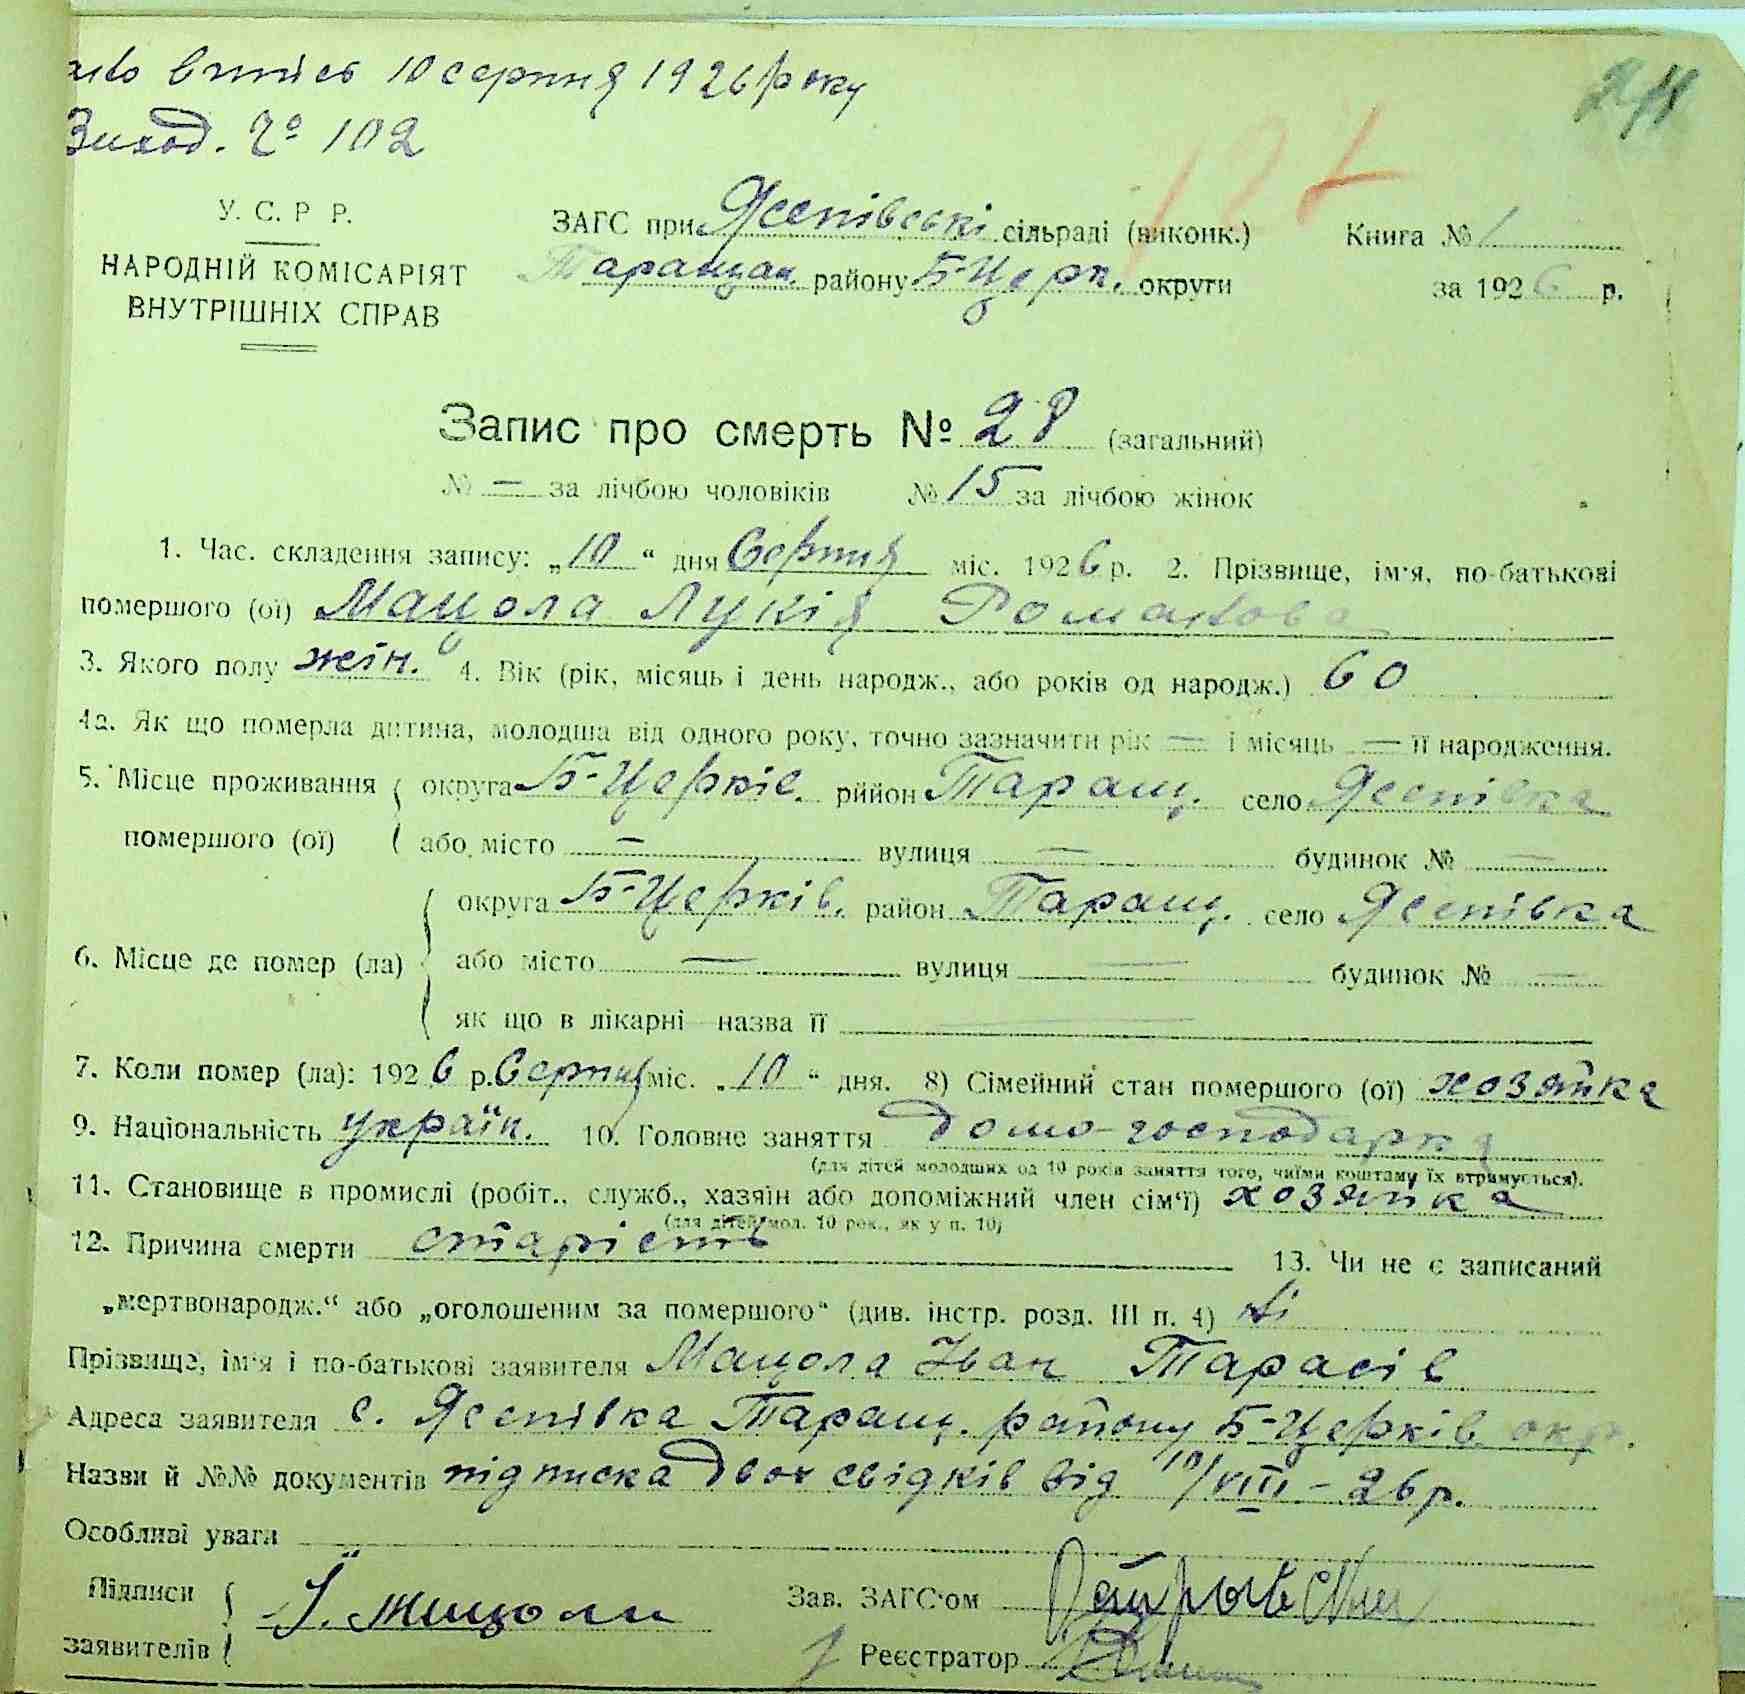 випись 10 серпня 1926 року
Виход. № 102
У. С. Р Р.
НАРОДНІЙ КОМІСАРІЯТ
ВНУТРІШНІХ СПРАВ
ЗАГС при Ясепівські сільраді (виконк.)
Таращан. району Б-Церк. округи
Книга № 1
за 1926 р.
Запис про смерть № 28 (загальний)
№ — за лічбою чоловіків № 15 за лічбою жінок
1. Час. складення запису: „10“ дня Серпня міс. 1926 р. 2. Прізвище, ім'я, по-батькові
помершого (ої) Мацола Лукія Романова
3. Якого полу жін. 4. Вік (рік, місяць і день народж., або років од народж.) 60
4а. Як що померла дитина, молодша від одного року, точно зазначити рік — і місяць — її народження.
5. Місце проживання округа Б-Церків. рййон Таращ. село Ясепівка
помершого (ої) або місто — вулиця — будинок № —
округа Б-Церків. район Таращ. село Ясепівка
6. Місце де помер (ла) або місто — вулиця — будинок № —
як що в лікарні назва її —
7. Коли помер (ла): 1926 р. Серпня міс. „10“ дня. 8) Сімейний стан помершого (ої) хозяйка
9. Національність україн. 10. Головне заняття домо-господарка
(для дітей молодших од 10 років заняття того, чиїми коштаму їх втримується).
11. Становище в промислі (робіт., служб., хазяїн або допоміжний член сім'ї) хозяйка
(для дітей мол. 10 рок., як у п. 10)
12. Причина смерти старість 13. Чи не є записаний
„мертвонародж.“ або „оголошеним за помершого“ (див. інстр. розд. III п. 4) ні
Прізвище, ім'я і по-батькові заявителя Мацола Іван Тарасів
Адреса заявителя с. Ясепівка Таращ. району Б-Церків. окр.
Назви й №№ документів підписка двох свідків від 10/VIII – 26 р.
Особливі уваги
Підписи
заявителів
І. Мацола
Зав. ЗАГС'ом
Реєстратор